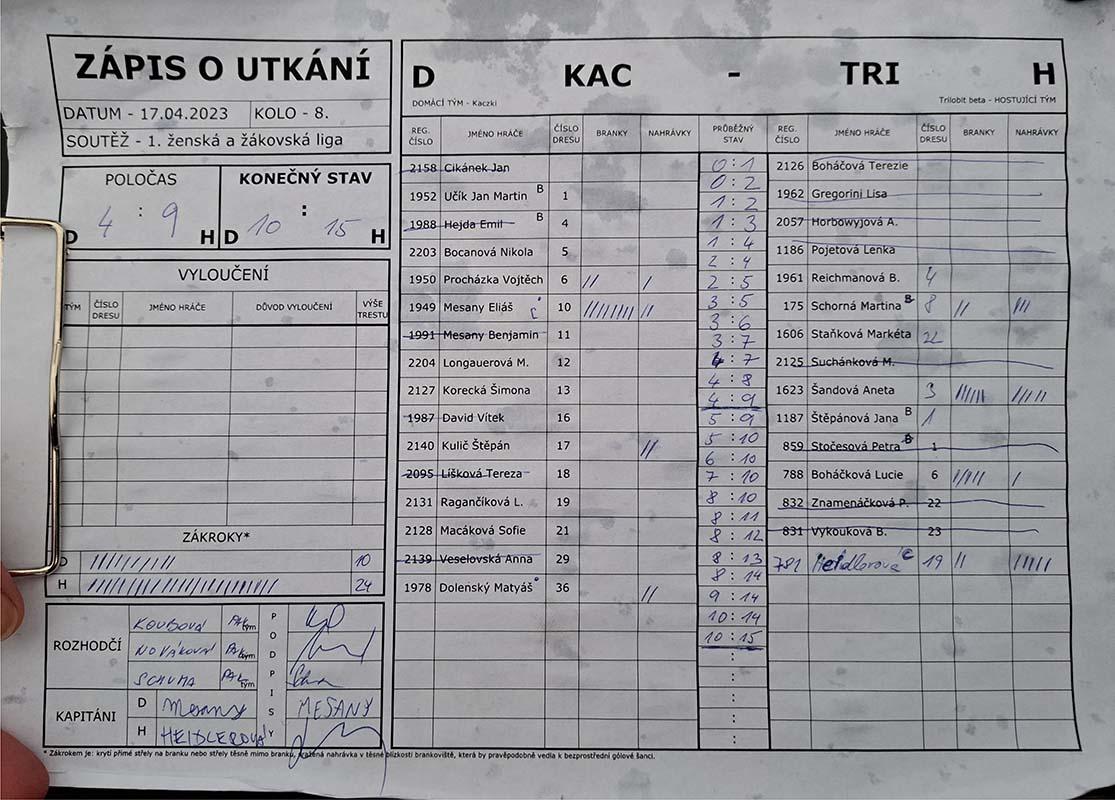 ZÁPIS O UTKÁNÍ
DATUM - 17.04.2023 KOLO - 8.
SOUTĚŽ - 1. ženská a žákovská liga
POLOČAS KONEČNÝ STAV
D 4 : 9 H D 10 : 15 H
VYLOUČENÍ
TÝM ČÍSLO DRESU JMÉNO HRÁČE DŮVOD VYLOUČENÍ VÝŠE TRESTU
ZÁKROKY*
D 10
H 24
ROZHODČÍ
KOUBOVÁ PAL tým
NOVÁKOVÁ PAL tým
SCHUMA PAL tým
PODPISY
KAPITÁNI
D Mesany MESANY
H HEIDLEROVÁ
D KAC - TRI H
DOMÁCÍ TÝM - Kaczki Trilobit beta - HOSTUJÍCÍ TÝM
REG. ČÍSLO JMÉNO HRÁČE ČÍSLO DRESU BRANKY NAHRÁVKY PRŮBĚŽNÝ STAV REG. ČÍSLO JMÉNO HRÁČE ČÍSLO DRESU BRANKY NAHRÁVKY
2158 Cikánek Jan
1952 Učík Jan Martin B 1
1988 Hejda Emil B 4
2203 Bocanová Nikola 5
1950 Procházka Vojtěch 6 // /
1949 Mesany Eliáš C 10 //////// //
1991 Mesany Benjamin 11
2204 Longauerová M. 12
2127 Korecká Šimona 13
1987 David Vítek 16
2140 Kulič Štěpán 17 //
2095 Líšková Tereza 18
2131 Ragančíková L. 19
2128 Macáková Sofie 21
2139 Veselovská Anna 29
1978 Dolenský Matyáš 36 //
0 : 1
0 : 2
1 : 2
1 : 3
1 : 4
2 : 4
2 : 5
3 : 5
3 : 6
3 : 7
4 : 7
4 : 8
4 : 9
5 : 9
5 : 10
6 : 10
7 : 10
8 : 10
8 : 11
8 : 12
8 : 13
8 : 14
9 : 14
10 : 14
10 : 15
:
:
:
:
2126 Boháčová Terezie
1962 Gregorini Lisa
2057 Horbowyjová A.
1186 Pojetová Lenka
1961 Reichmanová B. 4
175 Schorná Martina B 8 // ///
1606 Staňková Markéta 22
2125 Suchánková M.
1623 Šandová Aneta 3 ////// /////
1187 Štěpánová Jana B 1
859 Stočesová Petra B 1
788 Boháčková Lucie 6 ///// /
832 Znamenáčková P. 22
831 Vykouková B. 23
781 Heidlerová C 19 // /////
* Zákrokem je: krytí přímé střely na branku nebo střely těsně mimo branku, zražená nahrávka v těsné blízkosti brankoviště, která by pravěpodobně vedla k bezprostřední gólové šanci.